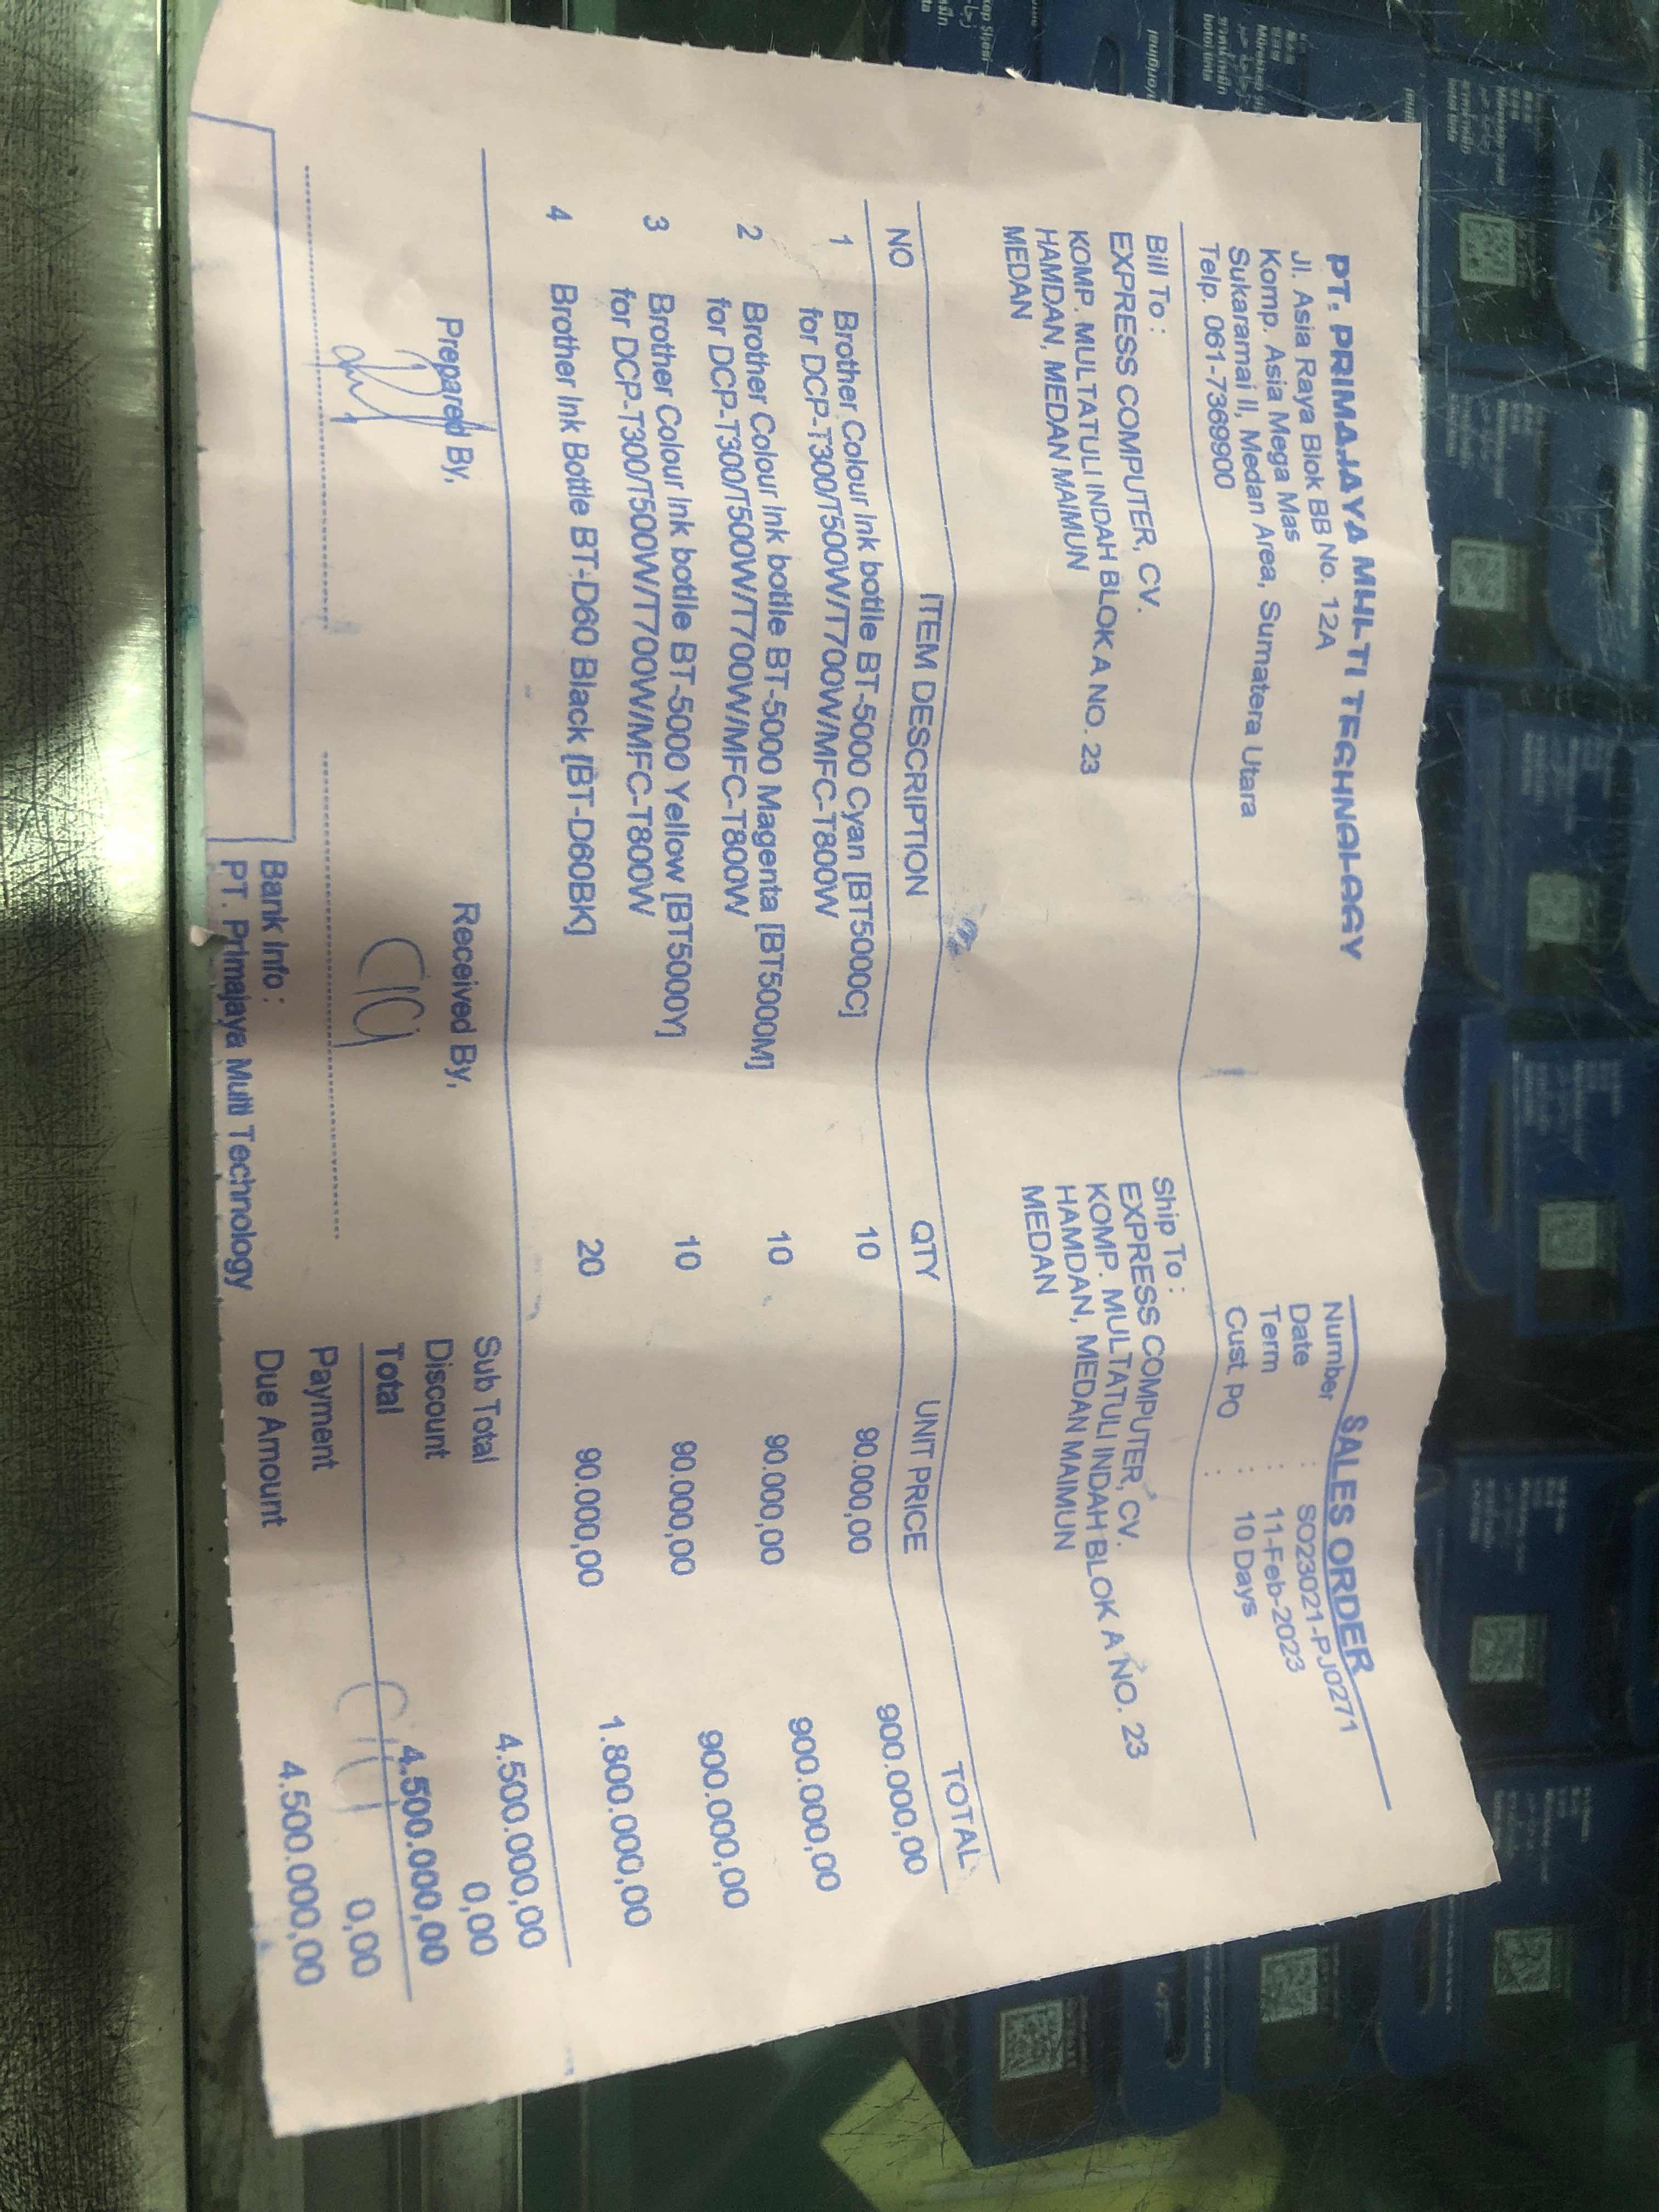 PT. PRIMAJAYA MULTI TECHNOLOGY
Jl. Asia Raya Blok BB No. 12A
Komp. Asia Mega Mas
Sukaramai II, Medan Area, Sumatera Utara
Telp. 061-7369900
SALES ORDER
Number : SO23021-PJ0271
Date : 11-Feb-2023
Term : 10 Days
Cust PO :
Bill To :
EXPRESS COMPUTER, CV.
KOMP. MULTATULI INDAH BLOK A NO. 23
HAMDAN, MEDAN MAIMUN
MEDAN
Ship To :
EXPRESS COMPUTER, CV.
KOMP. MULTATULI INDAH BLOK A NO. 23
HAMDAN, MEDAN MAIMUN
MEDAN
NO ITEM DESCRIPTION QTY UNIT PRICE TOTAL
1 Brother Colour Ink bottle BT-5000 Cyan [BT5000C] 10 90.000,00 900.000,00
for DCP-T300/T500W/T700W/MFC-T800W
2 Brother Colour Ink bottle BT-5000 Magenta [BT5000M] 10 90.000,00 900.000,00
for DCP-T300/T500W/T700W/MFC-T800W
3 Brother Colour Ink bottle BT-5000 Yellow [BT5000Y] 10 90.000,00 900.000,00
for DCP-T300/T500W/T700W/MFC-T800W
4 Brother Ink Bottle BT-D60 Black [BT-D60BK] 20 90.000,00 1.800.000,00
Prepared By,
Received By,
Sub Total 4.500.000,00
Discount 0,00
Total 4.500.000,00
Payment 0,00
Due Amount 4.500.000,00
Bank Info :
PT. Primajaya Multi Technology